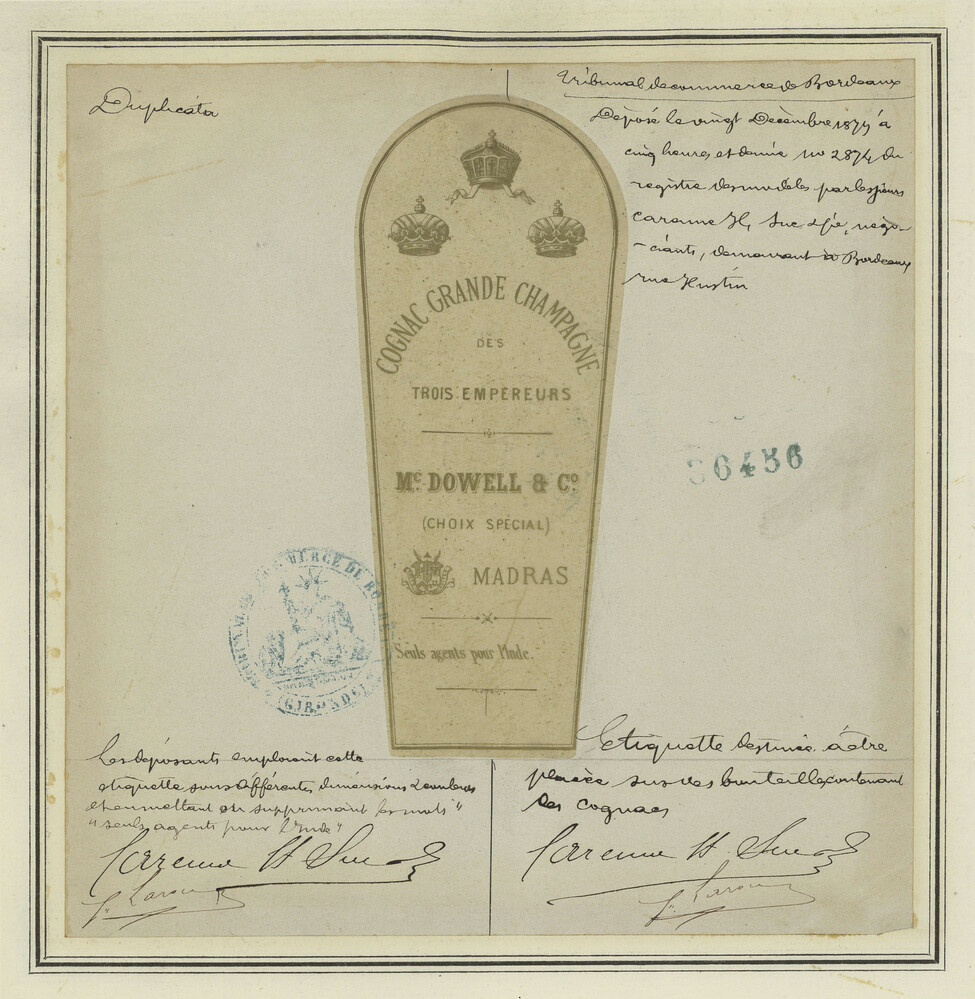 Duplicata
Tribunal de commerce de Bordeaux
Déposé le vingt Décembre 1879 à
cinq heures et demie no 2874 du
registre des modèles par les sieurs
négo-
-ciants, demeurant à Bordeaux
rue Hustin
COGNAC GRANDE CHAMPAGNE
DES
TROIS EMPEREURS
Mc DOWELL & Co.
(CHOIX SPÉCIAL)
MADRAS
Seuls agents pour l'Inde.
6436
GIRONDE
Les déposants emploient cette
étiquette sous différentes dimensions & couleurs
et en mettant ou supprimant les mots "
"seuls agents pour l'Inde"
Etiquette destinée à être
placée sur des bouteilles contenant
des cognacs